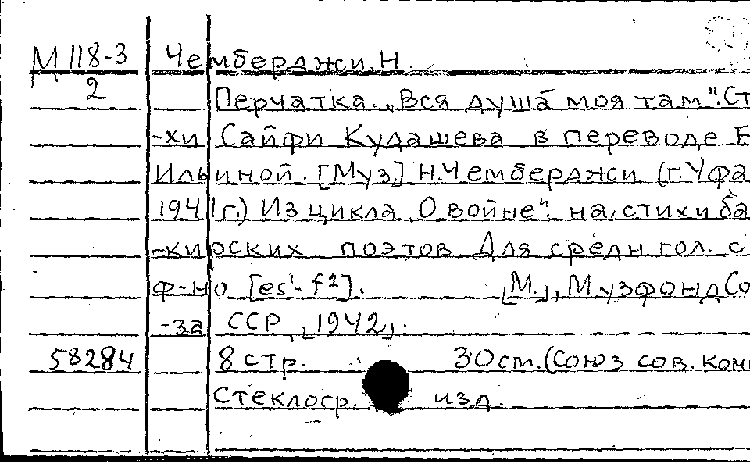 М 118-3 Чемберджи. Н.
2 Перчатка. „Вся душа моя там". Ст
-хи Сайфи Кудашева в переводе Е
Ильиной. [Муз] Н. Чемберджи (г. Уфа
1941 г.) Из цикла „О войне" на стихи ба
-кирских поэтов Для средн гол. с
ф-но [es¹- f²]. [М.], Музфонд Со
-за ССР, [1942].
58284 8 стр. 30 см. (Союз сов. комп
Стеклогр. изд.